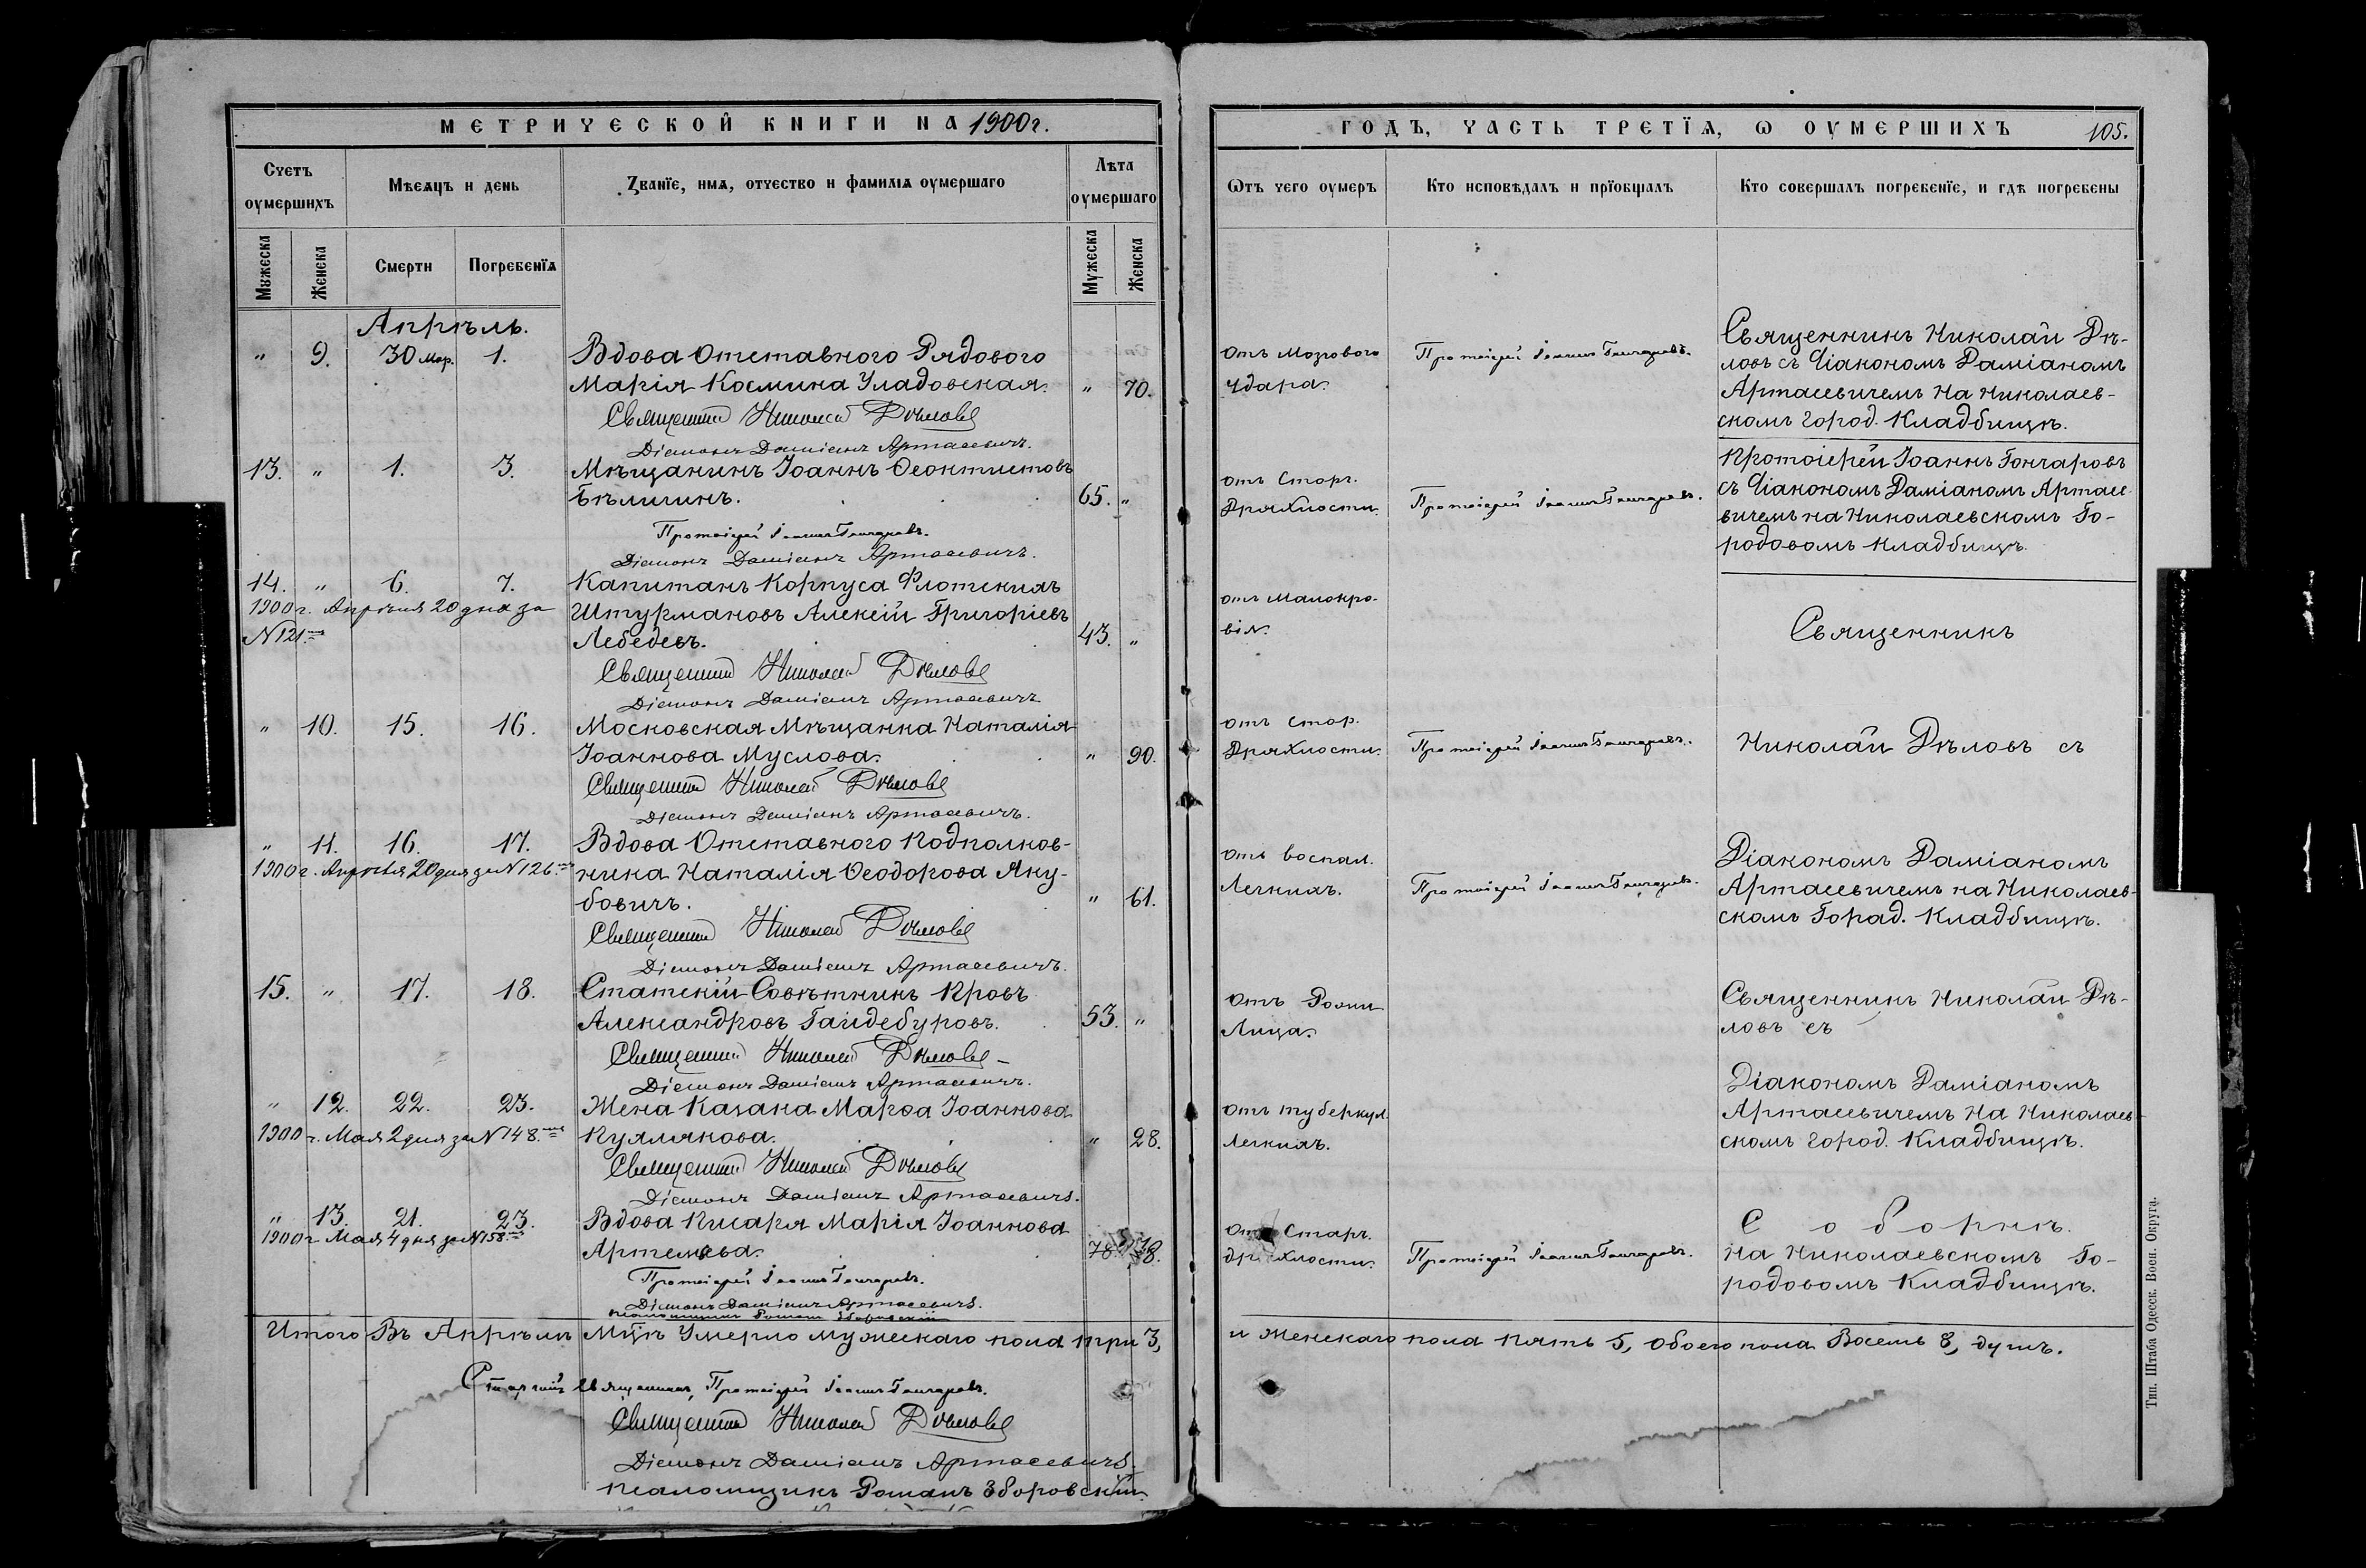 МЕТРИЧЕСКОЙ КНИГИ НА 1900 г.
Счетъ оумершихъ
Мѣсяцъ и день
Званіе, имя, отчество и фамилія оумершаго
Лѣта оумершаго
Мужеска
Женска
Смерти
Погребенія
Мужеска
Женска
Апрѣль.
„ 9. 30 мар. 1. Вдова Отставного Рядового
Марія Космина Уладовская. „ 70.
Священникъ Николай Дѣловъ
Діаконъ Даміанъ Артасевичъ.
13. „ 1. 3. Мѣщанинъ Іоаннъ Ѳеоктистовъ
Бѣлишинъ. 65. „
Протоіерей Іоаннъ Гончаровъ.
Діаконъ Даміанъ Артасевичъ.
14. „ 6. 7. Капитанъ Корпуса Флотскихъ
1900 г. Апрѣля 20 дня за Штурмановъ Алексій Григоріевъ
N 121. Лебедевъ. 43. „
Священникъ Николай Дѣловъ
Діаконъ Даміанъ Артасевичъ
„ 10. 15. 16. Московская Мѣщанка Наталія
Іоаннова Муслова. „ 90.
Священникъ Николай Дѣловъ
Діаконъ Даміанъ Артасевичъ.
„ 11. 16. 17. Вдова Отставного Подполков-
1900 г. Апрѣля 20 дня за N 126. ника Наталія Ѳеодорова Яку-
бовичъ. „ 61.
Священникъ Николай Дѣловъ
Діаконъ Даміанъ Артасевичъ.
15. „ 17. 18. Статскій Совѣтникъ Провъ
Александровъ Гайдебуровъ. 53. „
Священникъ Николай Дѣловъ
Діаконъ Даміанъ Артасевичъ.
„ 12. 22. 23. Жена Казака Марѳа Іоаннова
1900 г. Мая 2 дня за N 148. Кулякова. „ 28.
Священникъ Николай Дѣловъ
Діаконъ Даміанъ Артасевичъ.
„ 13. 21. 23. Вдова Писаря Марія Іоаннова
1900 г. Мая 4 дня за N 158.
Артемьева. 78.
Протоіерей Іоаннъ Гончаровъ.
Діаконъ Даміанъ Артасевичъ.
Псаломщикъ Романъ Зборовскій
Итого Въ Апрѣлѣ Мцѣ Умерло мужескаго пола три 3,
Старшій Священникъ, Протоіерей Іоаннъ Гончаровъ.
Священникъ Николай Дѣловъ
Діаконъ Даміанъ Артасевичъ.
Псаломщикъ Романъ Зборовскій.
ГОДЪ, ЧАСТЬ ТРЕТІЯ, Ѡ ОУМЕРШИХЪ 105.
Ѿтъ чего оумеръ
Кто исповѣдалъ и пріобщалъ
Кто совершалъ погребеніе, и гдѣ погребены
отъ мозгового
удара.
Протоіерей Іоаннъ Гончаровъ.
Священникъ Николай Дѣ-
ловъ съ Діакономъ Даміаномъ
Артасевичемъ на Николаев-
скомъ город. Кладбищѣ.
отъ Старч.
Дряхлости.
Протоіерей Іоаннъ Гончаровъ.
Протоіерей Іоаннъ Гончаровъ
съ Діакономъ Даміаномъ Артасе-
вичемъ на Николаевскомъ Го-
родовомъ кладбищѣ.
отъ Малокро-
вія.
Священникъ
отъ стар.
Дряхлости.
Протоіерей Іоаннъ Гончаровъ.
Николай Дѣловъ съ
отъ воспал.
Легкихъ.
Протоіерей Іоаннъ Гончаровъ.
Діакономъ Даміаномъ
Артасевичемъ на Николаев-
скомъ Город. Кладбищѣ.
отъ Рожи
Лица.
Священникъ Николай Дѣ-
ловъ съ
отъ туберкул.
Легкихъ.
Діакономъ Даміаномъ
Артасевичемъ на Николаев-
скомъ город. Кладбищѣ.
отъ Старч.
дряхлости.
Протоіерей Іоаннъ Гончаровъ.
Соборнѣ.
на Николаевскомъ Го-
родовомъ Кладбищѣ.
и Женскаго пола пять 5, обоего пола Восемь 8, душъ.
Тип. Штаба Одесск. Воен. Округа.